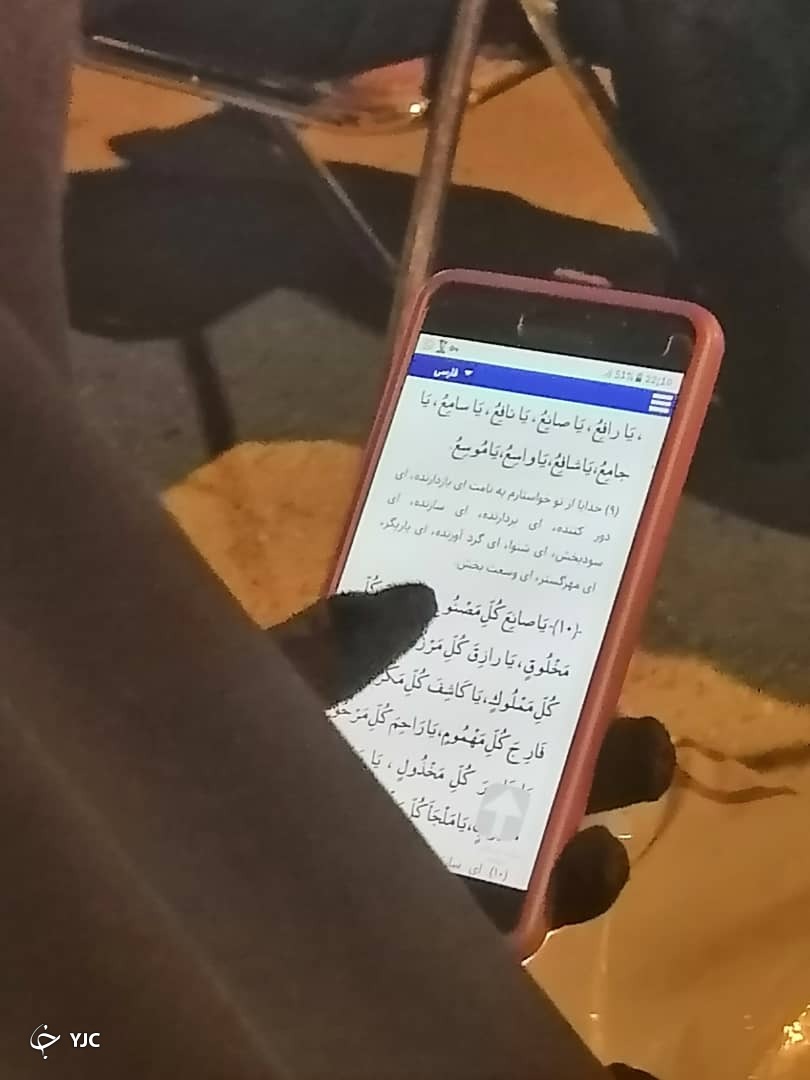 51% 22:10
فارسی
، یَا رافِعُ، یَا صانِعُ، یَا نافِعُ، یَا سامِعُ، یَا
جامِعُ، یَا شافِعُ، یَا واسِعُ، یَا مُوسِعُ.
(۹) خدایا از تو خواستارم به نامت ای بازدارنده، ای
دور کننده، ای بردارنده، ای سازنده، ای
سودبخش، ای شنوا، ای گرد آورنده، ای
ای مهرگستر، ای وسعت بخش.
(۱۰)-یَا صانِعَ کُلِّ مَصْنُو کُلِّ
مَخْلُوقٍ، یَا رازِقَ کُلِّ مَرْز
کُلِّ مَمْلُوكٍ، یَا کَاشِفَ کُلِّ مَكْر
فَارِجَ کُلِّ مَهْمُومٍ، یَا رَاحِمَ کُلِّ مَرْحُو
کُلِّ مَخْذُولٍ ، یَا
، یَا مَلْجَأَ کُلِّ
(۱۰) ای
YJC